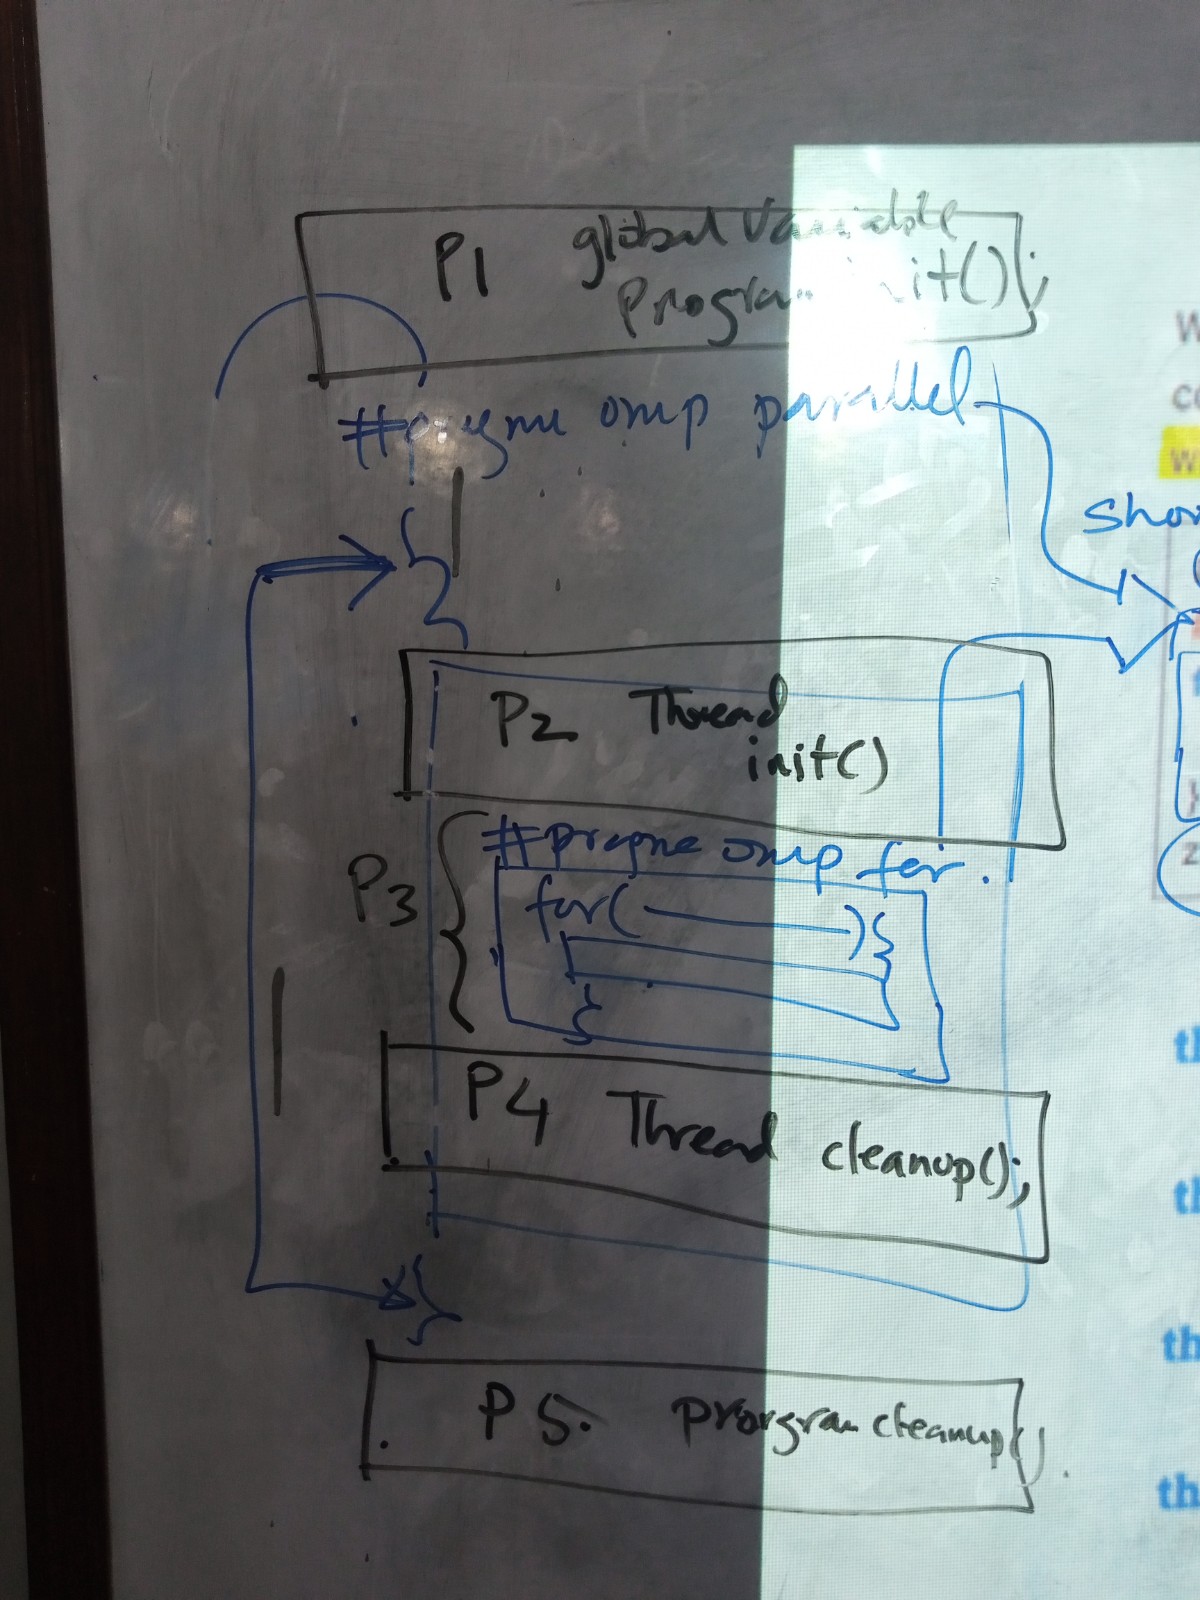 P1 global Variable
Program init();
#pragma omp parallel
{
P2 Thread
init()
P3 { #pragme omp for
for( ){
}
P4 Thread cleanup();
}
P5. prorgram cleanup()
W
co
w
Shor
z
th
th
th
th